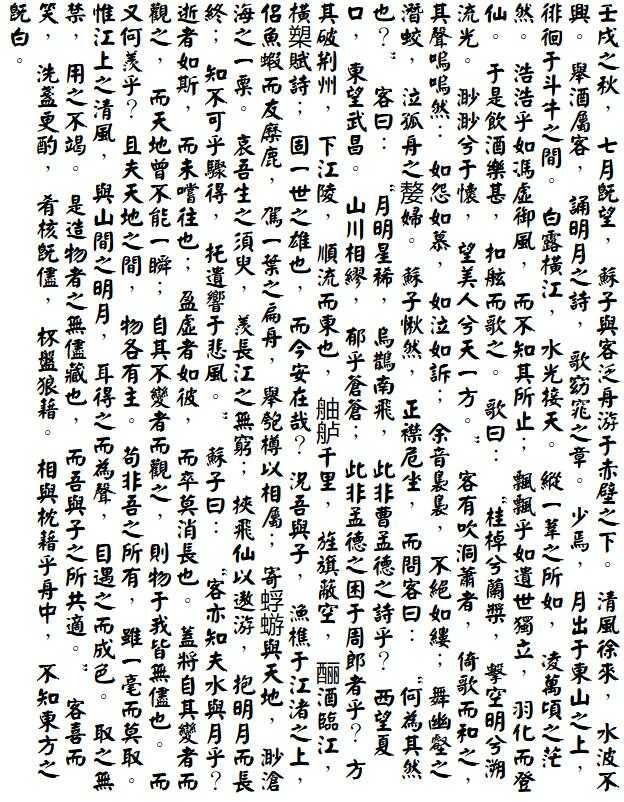 壬戌之秋，七月既望，蘇子與客泛舟游于赤壁之下。清風徐來，水波不
興。舉酒屬客，誦明月之詩，歌窈窕之章。少焉，月出于東山之上，
徘徊于斗牛之間。白露橫江，水光接天。縱一葦之所如，凌萬頃之茫
然。浩浩乎如馮虛御風，而不知其所止；飄飄乎如遺世獨立，羽化而登
仙。于是飲酒樂甚，扣舷而歌之。歌曰：“桂棹兮蘭槳，擊空明兮溯
流光。渺渺兮于懷，望美人兮天一方。”客有吹洞蕭者，倚歌而和之，
其聲嗚嗚然：如怨如慕，如泣如訴；余音裊裊，不絕如縷；舞幽壑之
潛蛟，泣孤舟之嫠婦。蘇子愀然正襟危坐，而問客曰：“何為其然
也？”客曰：“月明星稀，烏鵲南飛，此非曹孟德之詩乎？西望夏
口，東望武昌。山川相繆，郁乎蒼蒼；此非孟德之困于周郎者乎？方
其破荆州，下江陵，順流而東也，舳舻千里，旌旗蔽空，酾酒臨江，
橫槊賦詩；固一世之雄也，而今安在哉？況吾與子，漁樵于江渚之上，
侶魚蝦而友麋鹿，駕一葉之扁舟，舉匏樽以相屬；寄蜉蝣與天地，渺滄
海之一粟。哀吾生之須臾，羨長江之無窮；挾飛仙以遨游，抱明月而長
終；知不可乎驟得，托遺響于悲風。”蘇子曰：“客亦知夫水與月乎？
逝者如斯，而未嘗往也；盈虛者如彼，而卒莫消長也。蓋將自其變者而
觀之，而天地曾不能一瞬；自其不變者而觀之，則物于我皆無儘也。而
又何羨乎？且夫天地之間，物各有主。苟非吾之所有，雖一毫而莫取。
惟江上之清風，與山間之明月，耳得之而為聲，目遇之而成色。取之無
禁，用之不竭。是造物者之無儘藏也，而吾與子之所共適。”客喜而
笑，洗盞更酌，肴核既儘，杯盤狼藉。相與枕藉乎舟中，不知東方之
既白。